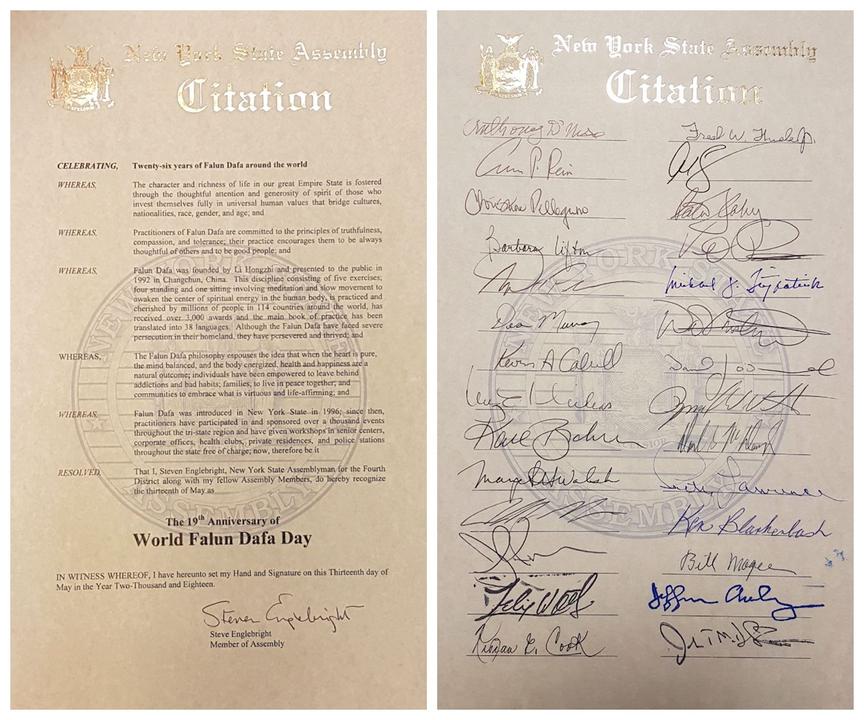 New York State Assembly
Citation
CELEBRATING, Twenty-six years of Falun Dafa around the world
WHEREAS, The character and richness of life in our great Empire State is fostered
through the thoughtful attention and generosity of spirit of those who
invest themselves fully in universal human values that bridge cultures,
nationalities, race, gender, and age; and
WHEREAS, Practitioners of Falun Dafa are committed to the principles of truthfulness,
compassion, and tolerance; their practice encourages them to be always
thoughtful of others and to be good people; and
WHEREAS, Falun Dafa was founded by Li Hongzhi and presented to the public in
1992 in Changchun, China. This discipline consisting of five exercises;
four standing and one sitting involving meditation and slow movement to
awaken the center of spiritual energy in the human body, is practiced and
cherished by millions of people in 114 countries around the world, has
received over 3,000 awards and the main book of practice has been
translated into 38 languages. Although the Falun Dafa have faced severe
persecution in their homeland, they have persevered and thrived; and
WHEREAS, The Falun Dafa philosophy espouses the idea that when the heart is pure,
the mind balanced, and the body energized, health and happiness are a
natural outcome; individuals have been empowered to leave behind
addictions and bad habits; families, to live in peace together; and
communities to embrace what is virtuous and life-affirming; and
WHEREAS, Falun Dafa was introduced in New York State in 1996; since then,
practitioners have participated in and sponsored over a thousand events
throughout the tri-state region and have given workshops in senior centers,
corporate offices, health clubs, private residences, and police stations
throughout the state free of charge; now, therefore be it
RESOLVED, That I, Steven Englebright, New York State Assemblyman for the Fourth
District along with my fellow Assembly Members, do hereby recognize
the thirteenth of May as
The 19th Anniversary of
World Falun Dafa Day
IN WITNESS WHEREOF, I have hereunto set my Hand and Signature on this Thirteenth day of
May in the Year Two-Thousand and Eighteen.
Steven Englebright
Steve Englebright
Member of Assembly
New York State Assembly
Citation
Fred W.
Barbara Lifton
Michael J. Fitzpatrick
Dean Murray
Kevin A Cahill
Lawrence
Ken Blankenbush
Bill Magee
E. Cook